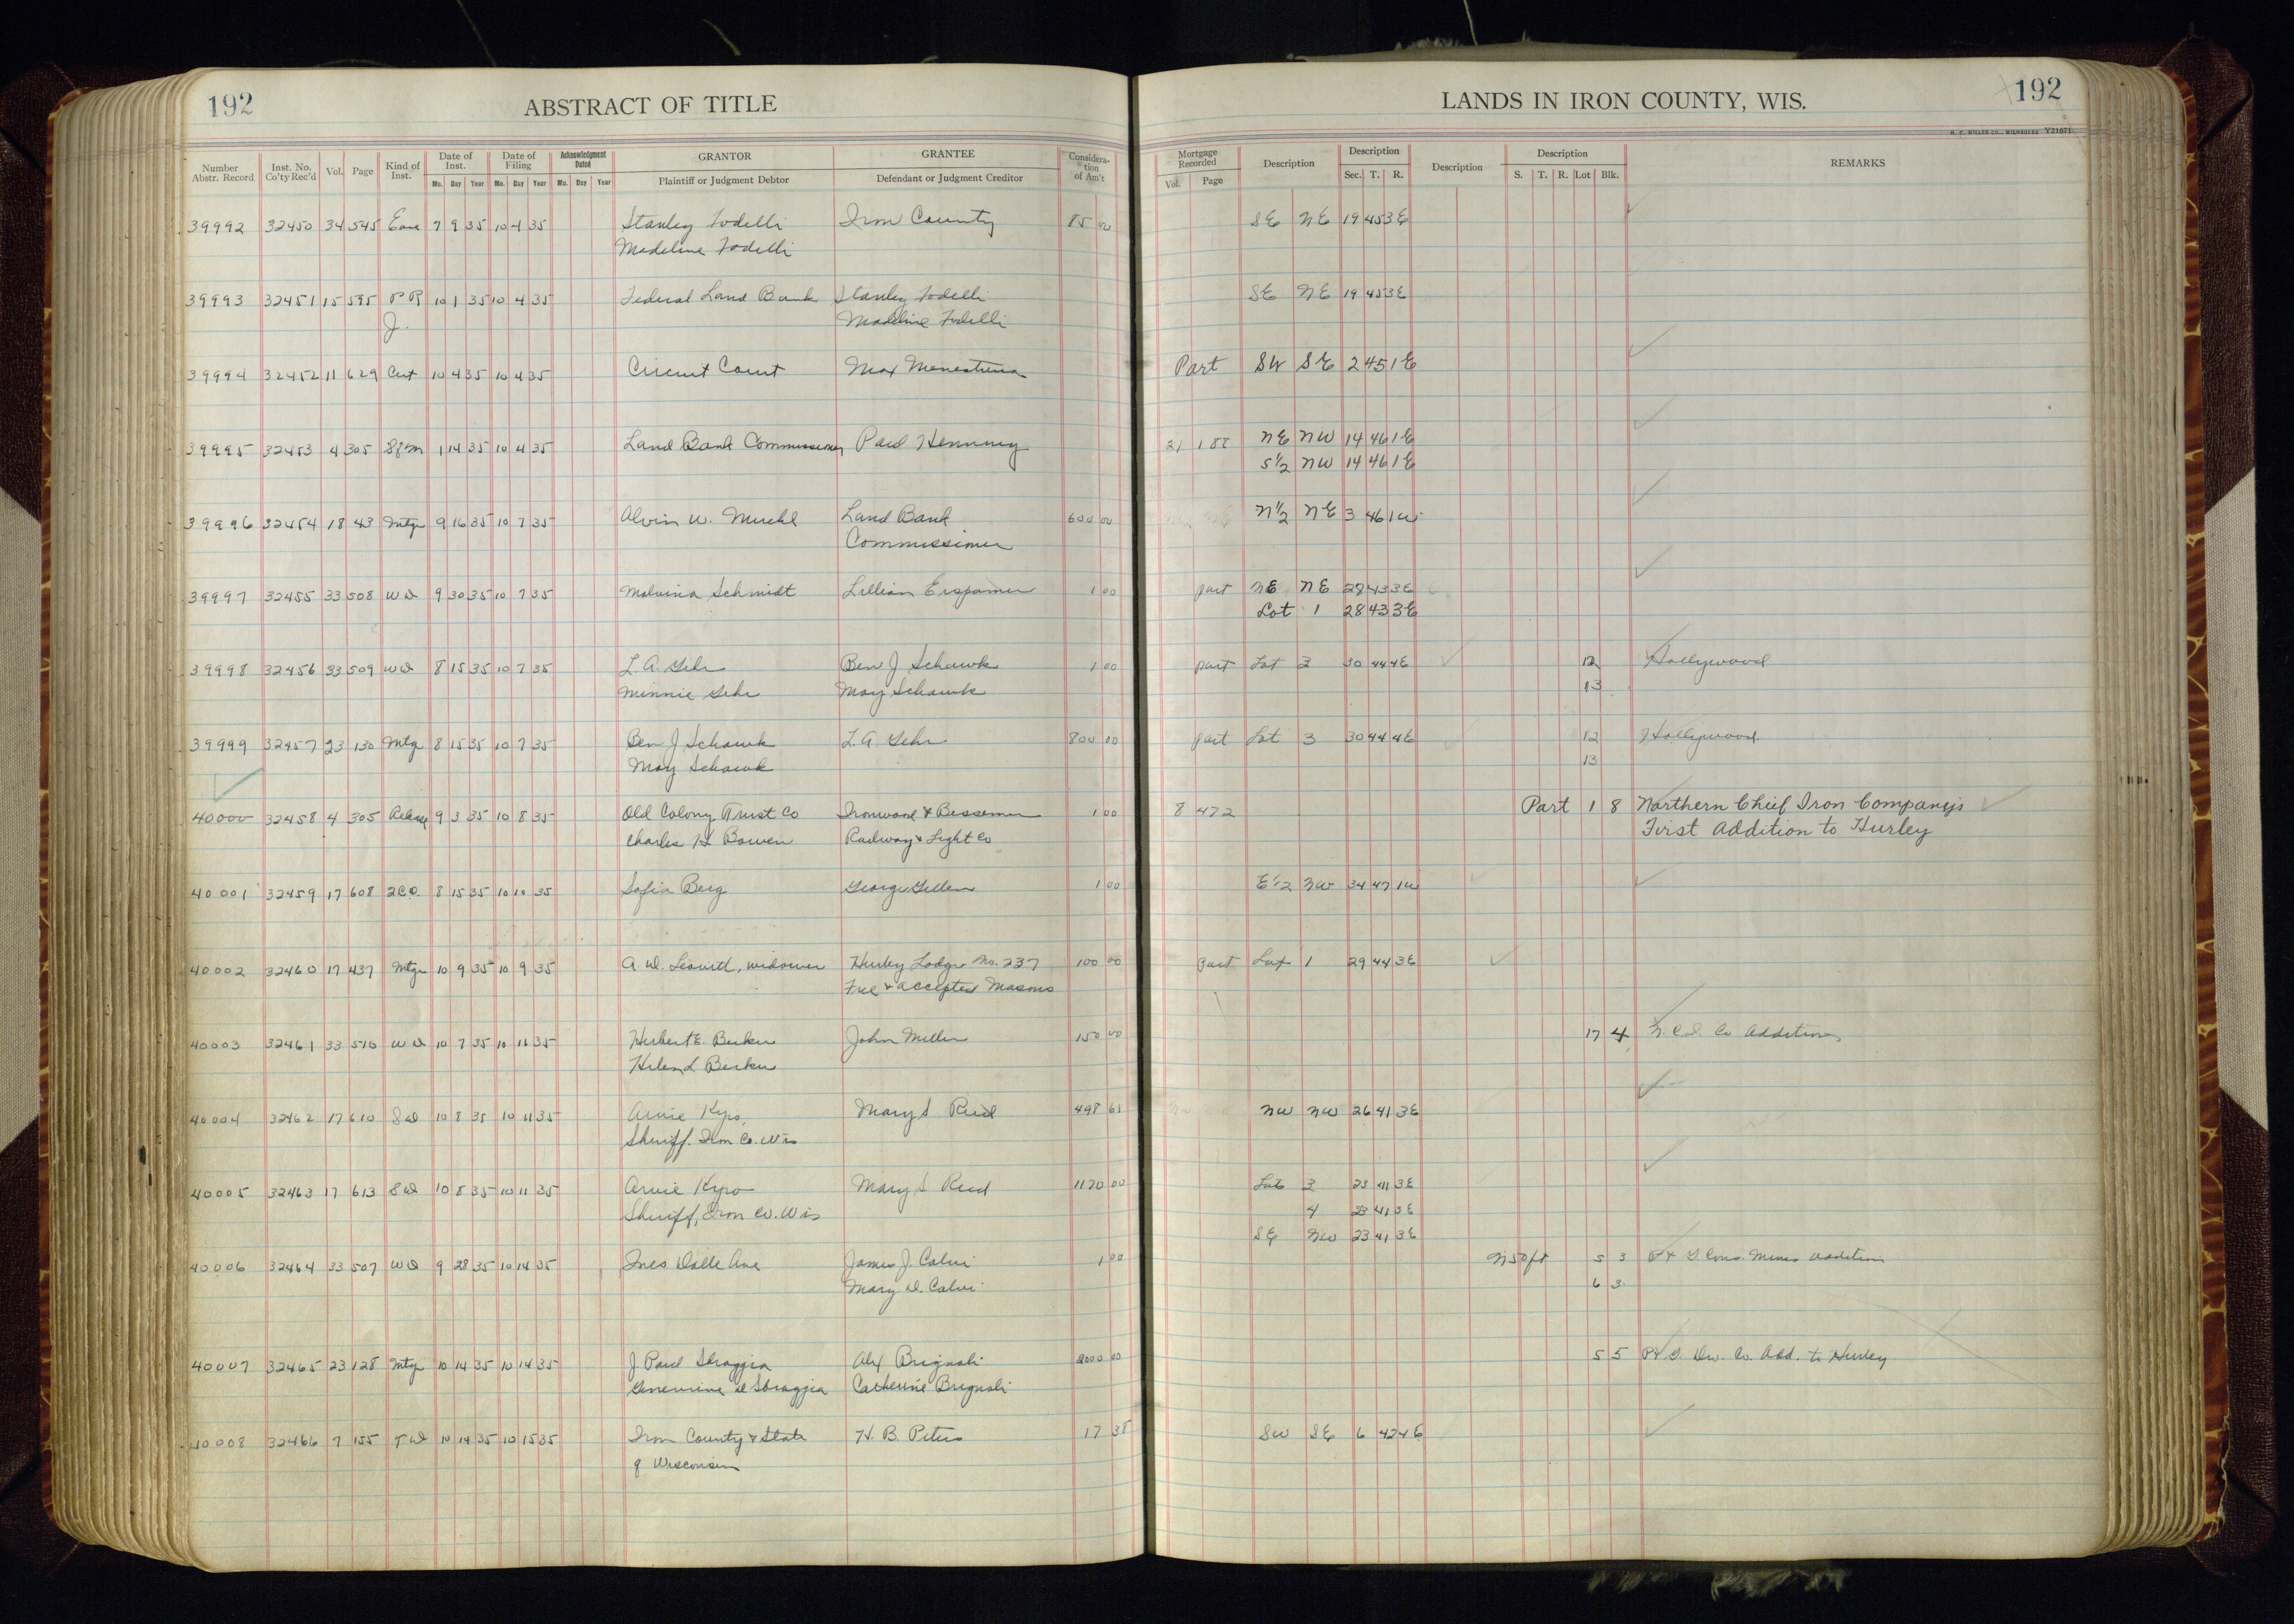 192 ABSTRACT OF TITLE LANDS IN IRON COUNTY, WIS. 192
H. C. MILLER CO., MILWAUKEE Y21671
Number Abstr. Record Inst. No. Co'ty Rec'd Vol. Page Kind of Inst. Date of Inst. Mo. Day Year Date of Filing Mo. Day Year Acknowledgment Dated Mo. Day Year GRANTOR Plaintiff or Judgment Debtor GRANTEE Defendant or Judgment Creditor Considera-tion of Am't Mortgage Recorded Vol. Page Description Description Sec. T. R. Description Description S. T. R. Lot Blk. REMARKS
39992 32450 34 545 Ease 7 9 35 10 4 35 Stanley Fodelli Iron County 85 00 SE NE 19 45 3E
Madeline Fodelli
39993 32451 15 595 P R 10 1 35 10 4 35 Federal Land Bank Stanley Fodelli SE NE 19 45 3E
J. Madeline Fodelli
39994 32452 11 629 Cert 10 4 35 10 4 35 Circuit Court Max Part SW SE 2 45 1E
39995 32453 4 305 1 14 35 10 4 35 Land Bank Commissioner Paul Henning 21 188 NE NW 14 46 1E
S½ NW 14 46 1E
39996 32454 18 43 Mtge 9 16 35 10 7 35 Alvin W. Land Bank 600 00 N½ NE 3 46 1W
Commissioner
39997 32455 33 508 WD 9 30 35 10 7 35 Malvina Schmidt Lillian Erspamer 1 00 part NE NE 28 43 3E
Lot 1 28 43 3E
39998 32456 33 509 WD 8 15 35 10 7 35 L. A. Gehr Ben J. Schawk 1 00 part Lot 3 30 44 4E 12 Hollywood
Minnie Gehr May Schawk 13
39999 32457 23 130 Mtge 8 15 35 10 7 35 Ben J Schawk L. A Gehr 800 00 part Lot 3 30 44 4E 12 Hollywood
May Schawk 13
40000 32458 4 305 Release 9 3 35 10 8 35 Old Colony Trust Co Ironwood & Bessemer 1 00 8 472 Part 1 8 Northern Chief Iron Company's
Charles H Bowen Railway & Light Co First Addition to Hurley
40001 32459 17 608 2CD. 8 15 35 10 10 35 Sofia Berg George 1 00 E½ NW 34 47 1W
40002 32460 17 437 Mtge 10 9 35 10 9 35 A W. Leavitt, widower Hurley Lodge No. 237 100 00 part Lot 1 29 44 3E
Free & accepted Masons
40003 32461 33 510 WD 10 7 35 10 11 35 Herbert E. Becker John Miller 150 00 17 4 N. C. I. Co Addition
Helen L Becker
40004 32462 17 610 SD 10 8 35 10 11 35 Arvie Kypo, Mary S Reid 498 61 NW NW 26 41 3E
Sheriff. Iron Co. Wis
40005 32463 17 613 SD 10 8 35 10 11 35 Arvie Kypo Mary S Reid 1120 00 Lot 3 23 41 3E
Sheriff, Iron Co. Wis 4 23 41 3E
SE NW 23 41 3E
40006 32464 33 507 WD 9 28 35 10 14 35 Ines Dalle Ave James J. Calvi 1 00 N 50 ft 5 3 P & G Cons. Mines Addition
Mary D. Calvi 6 3
40007 32465 23 128 Mtge 10 14 35 10 14 35 J. Paul Sbraggia Alex Brignoli 2000 00 5 5 Co. Add. to Hurley
Genevieve D Sbraggia Catherine Brignoli
40008 32466 7 155 TD 10 14 35 10 15 35 Iron County & State H. B. Peters 17 38 SW SE 6 42 4E
of Wisconsin